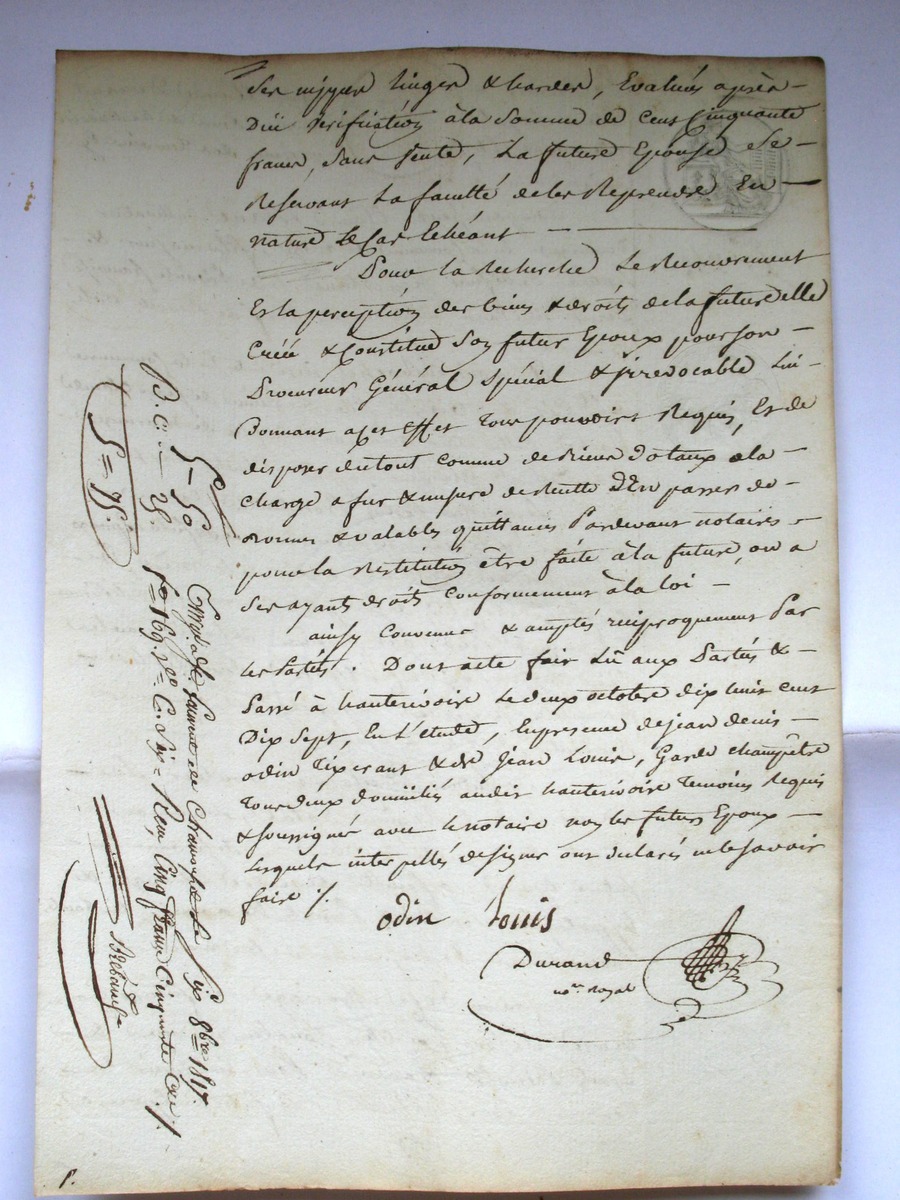 Ses nippes linges & hardes, Evalués après
Düe vérification à la Somme de cent Cinquante
francs, Sans vente, La future Epouse Se
Reservant La faculté de les Reprendre En
nature Le Cas Echéant
Pour la Recherche Le Recouvrement
Et la perception des biens & droits de la future Elle
Créé & Constitue Son futur Epoux pour son
Procureur Général Spécial & irrévocable Lui
Donnant a Cet Effet Tous pouvoirs Requis, Et de
disposer du tout comme de Biens dotaux a la
charge a fur & mesure de Recette D'En passer
bonnes & valables quittances Pardevant notaires
pour la Restitution être faite à la future, ou a
Ses ayants droits Conformement à la loi
ainsy Convenus & acceptés réciproquement Par
les Partes. Dont acte fait Lû aux Parties &
Passé à hauterivoire Le deux octobre dix huit cent
Dix Sept, En L'étude, En presence de jean denis
odin Tixerant & de Jean Louis, Garde champêtre
Tous deux domiciliés audit hauterivoire Temoins Requis
& Soussignés avec le notaire non les futurs Epoux
Lesquels interpellés de signer ont declarés ne le Savoir
faire ./.
odin Louis
Durand
no.re Royal
5-50
B. C.
5 = 75.
à St Laurent de Chamousset Le Six 8bre 1817.
fo 169. Ro C. Six = Reçu Cinq francs Cinquante Cmes /.
1.